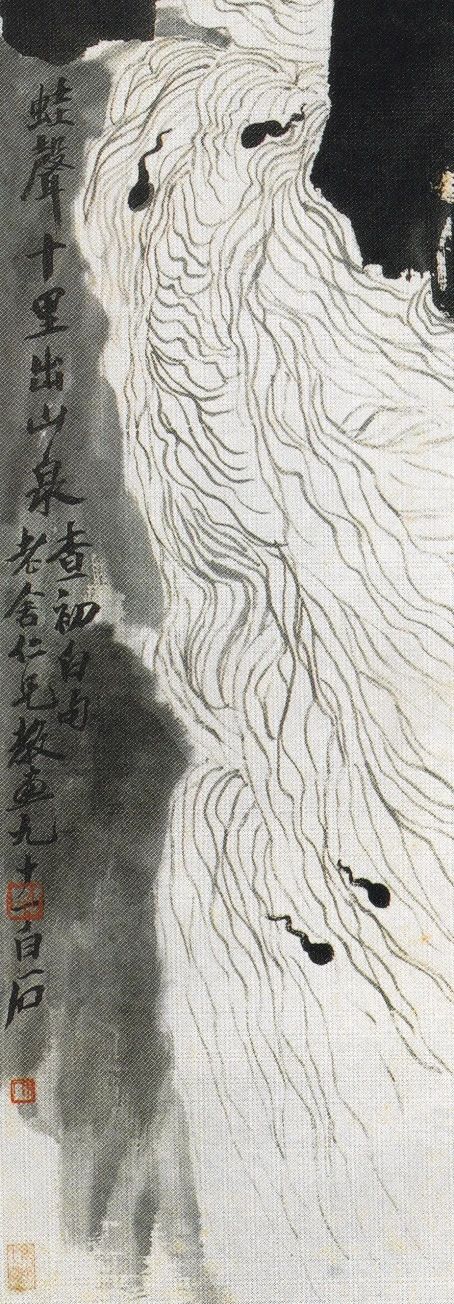 蛙聲十里出山泉
查初白句
老舍仁兄教畫九十一白石